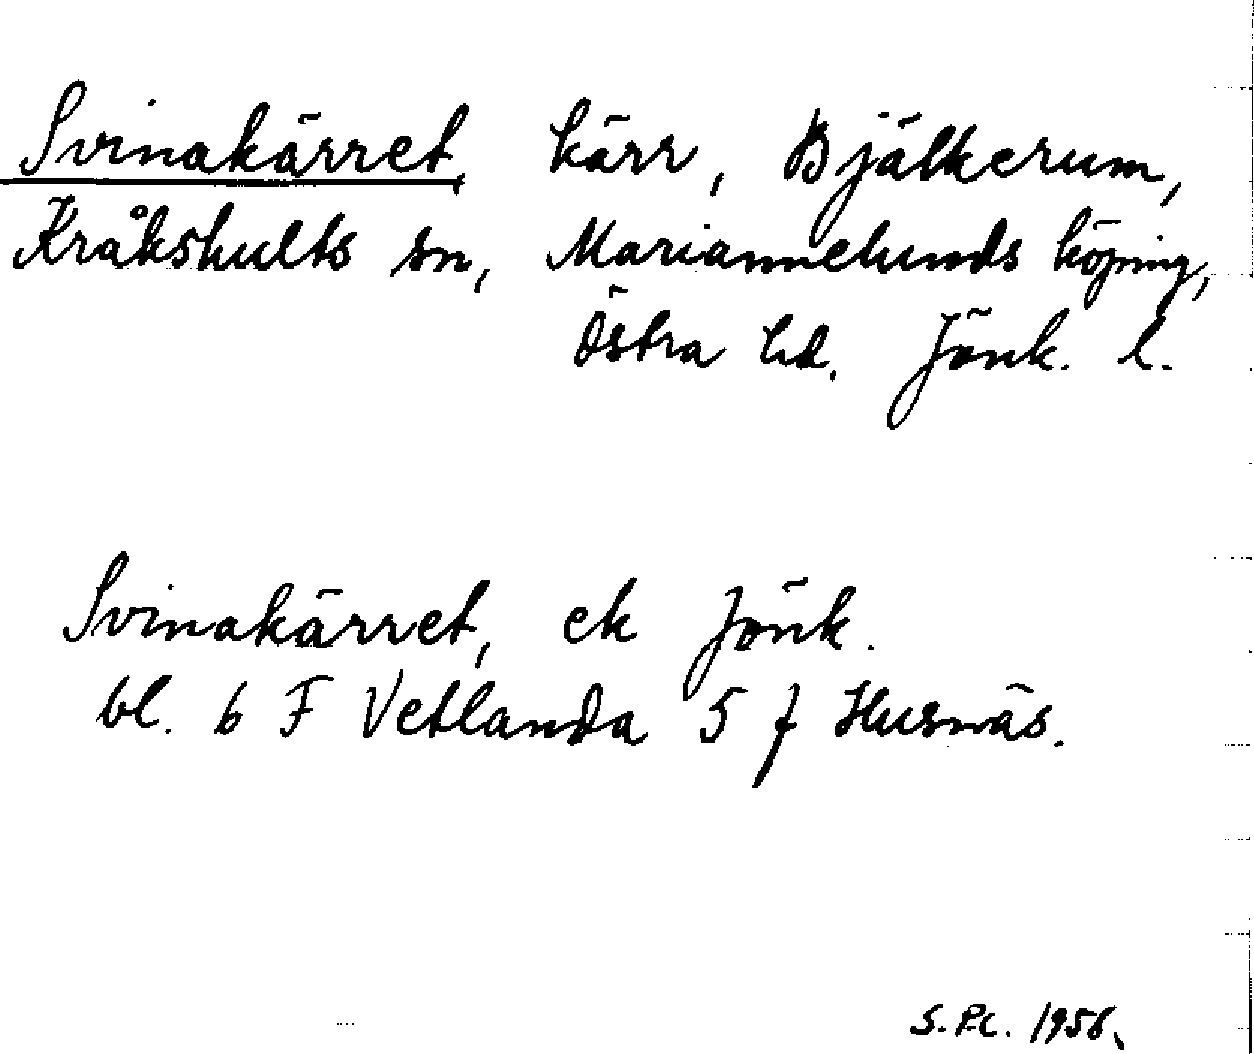 Svinakärret, kärr, Bjälkerum,
Kråkshults sn, Mariannelunds köping,
Östra hd. Jönk. l.
Svinakärret, ek Jönk.
bl. 6 F Vetlanda 5 f Husnäs.
S.P.C. 1956.